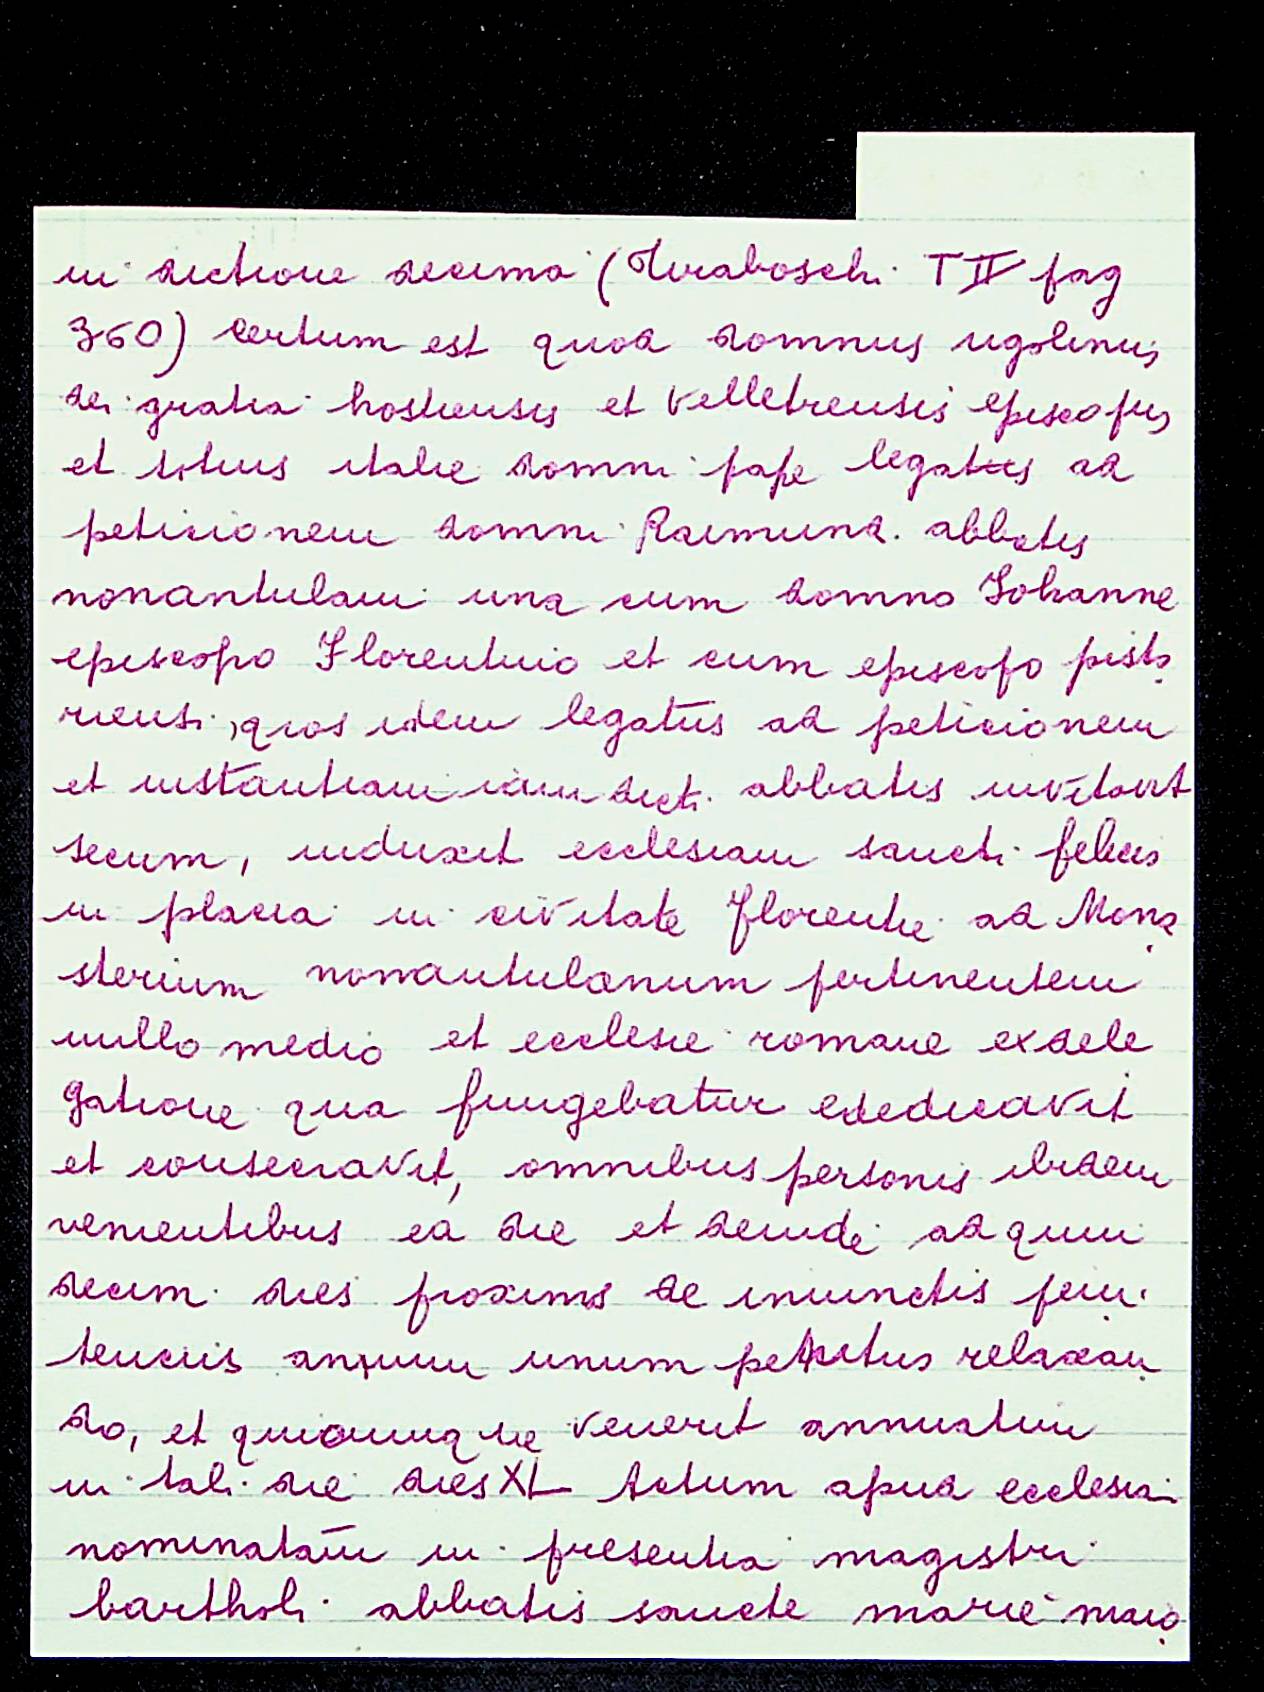 in dictione decima (Tiraboschi T II pag
360) certum est quod domnus ugolinus
dei gratia hostiensis et velletrensis episcopus
et totius italie domni pape legatus ad
peticionem domni Raimund. abbatis
nonantulani una cum domno Johanne
episcopo Florentino et cum episcopo pisto
riensi, quos idem legatus ad peticionem
et instantiam iam dicti abbatis invitavit
secum, induxit ecclesiam sancti felicis
in placia in civitate florentie ad Mona
sterium nonantulanum pertinentem
nullo medio et ecclesie romane ex dele
gatione qua fungebatur dedicavit
et consecravit, omnibus personis ibidem
venientibus ea die et deinde ad quin
decim dies proximis de iniunctis peni
tenciis annum unum penitus relaxan
do, et quicumque venerit annuatim
in tali die dies XL Actum apud ecclesiam
nominatam in presentia magistri
bartholi abbatis sancte marie maio